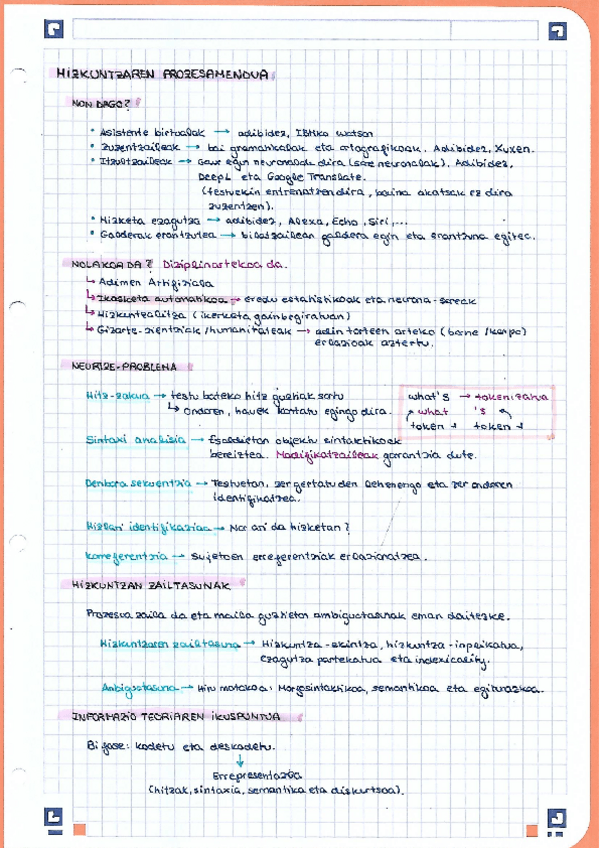 HIZKUNTZAREN PROZESAMENDUA
NON DAGO?
• Asistente birtualak → adibidez, IBMko Watson
• Zuzentzaileak → bai gramatikalak eta ortografikoak. Adibidez, Xuxen.
• Itzultzaileak → Gaur egun neuronalak dira (sare neuronalak). Adibidez,
DeepL eta Google Translate.
(testuekin entrenatzen dira, baina akatsak ez dira
zuzentzen).
• Hizketa ezagutza → adibidez, Alexa, Echo, Siri,...
• Galderak erantzutea → bilatzailean galdera egin eta erantzuna egitea.
NOLAKOA DA? Diziplinartekoa da.
↳ Adimen Artifiziala
↳ Ikasketa automatikoa → eredu estatistikoak eta neurona-sareak
↳ Hizkuntzalitza (ikerketa gainbegiratuan)
↳ Gizarte-zientziak/humanitateak → adin tarteen arteko
erlazioak aztertu.
NEURTZE-PROBLEMA
Hitz-zakua → testu bateko hitz guztiak sartu
↳ Ondoren, hauek kontatu egingo dira.
what's → tokenizatua
what 's
token 1 token 1
Sintaxi analisia → Esaldietan objektu sintaktikoak
bereiztea. Modifikatzaileak garrantzia dute.
Denbora sekuentzia → Testuetan, zer gertatu den lehenengo eta zer ondoren
identifikatzea.
Hizlari identifikazioa → Nor ari da hizketan?
Korreferentzia → Sujetoen erreferentziak erlazionatzea.
HIZKUNTZAN ZAILTASUNAK
Prozesua zaila da eta maila guztietan ambiguotasunak eman daitezke.
Hizkuntzaren zailtasuna → Hizkuntza-ekintza, hizkuntza-inplikatua,
ezagutza partekatua eta indexicality.
Anbiguotasuna → Hiru motakoa: Morfosintaktikoa, semantikoa eta egiturazkoa.
INFORMAZIO TEORIAREN IKUSPUNTUA
Bi fase: kodetu eta deskodetu.
↓
Errepresentazioa
(hitzak, sintaxia, semantika eta diskurtsoa).